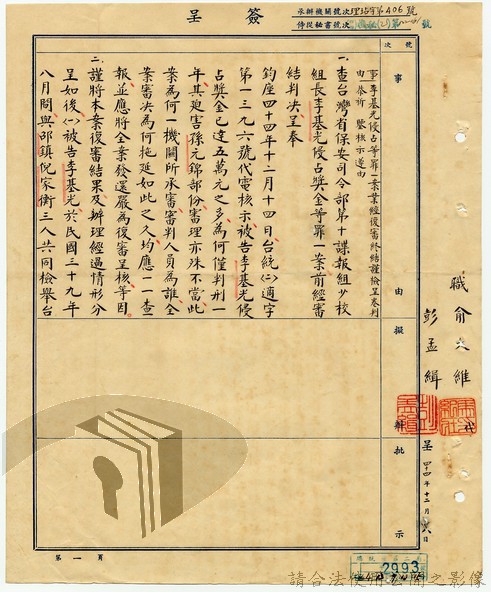 簽呈
承辦機關號次 理珀字第406號
侍從秘書號次
號次
事由
擬辦
批示
事由 李基光侵占等罪一案業經復審終結謹檢呈卷判恭祈鑒核示遵由
一、查台灣省保安司令部第十諜報組少校
組長李基光侵占獎金等罪一案前經審
結判決呈奉
鈞座四十四年十二月十四日台統㈡適字
第一三九六號代電核示被告李基光侵
占獎金已達五萬元之多為何僅判刑一
年其迫害孫元錦部份審理亦殊不當此
案為何一機關所承審審判人員為誰全
案審決為何拖延如此之久均應一一查
報並應將全案發還嚴為復審呈核等因
二、謹將本案復審結果及辦理經過情形分
呈如後㈠被告李基光於民國三十九年
八月間與邱鎮倪家衡三人共同檢舉台
職俞大維
彭孟緝
代
呈 四十四年十二月 日
第一頁
2993
請合法使用公開之影像